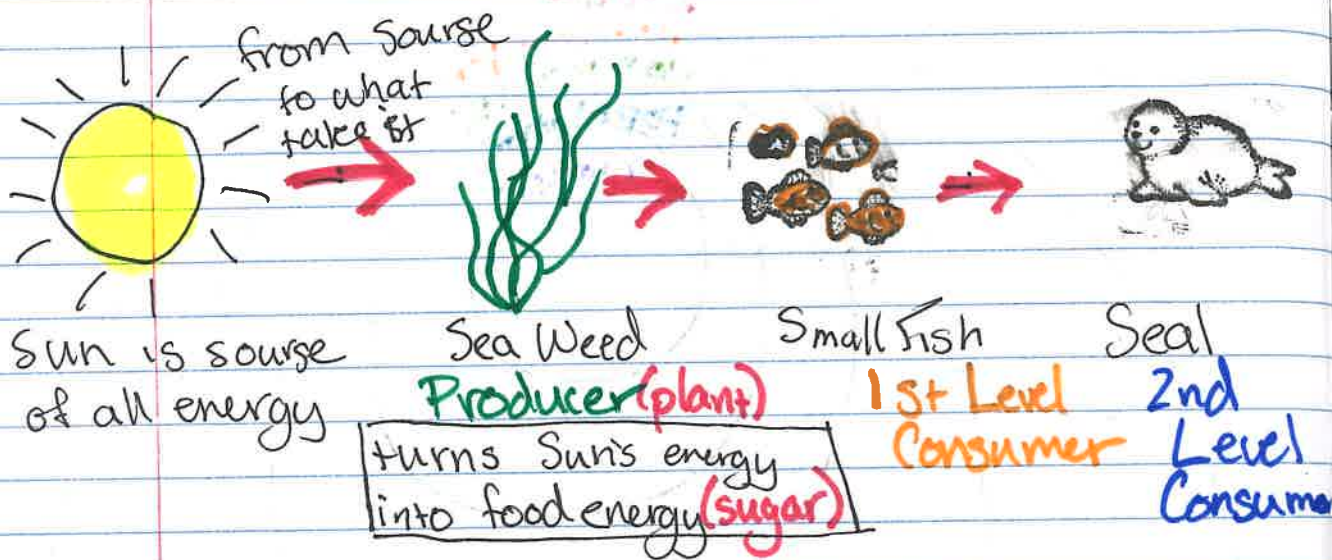 from sourse
to what
take it
Sun is sourse
of all energy
Sea Weed
Producer (plant)
turns Sun's energy
into food energy (sugar)
Small Fish
1st Level
Consumer
Seal
2nd
Level
Consume